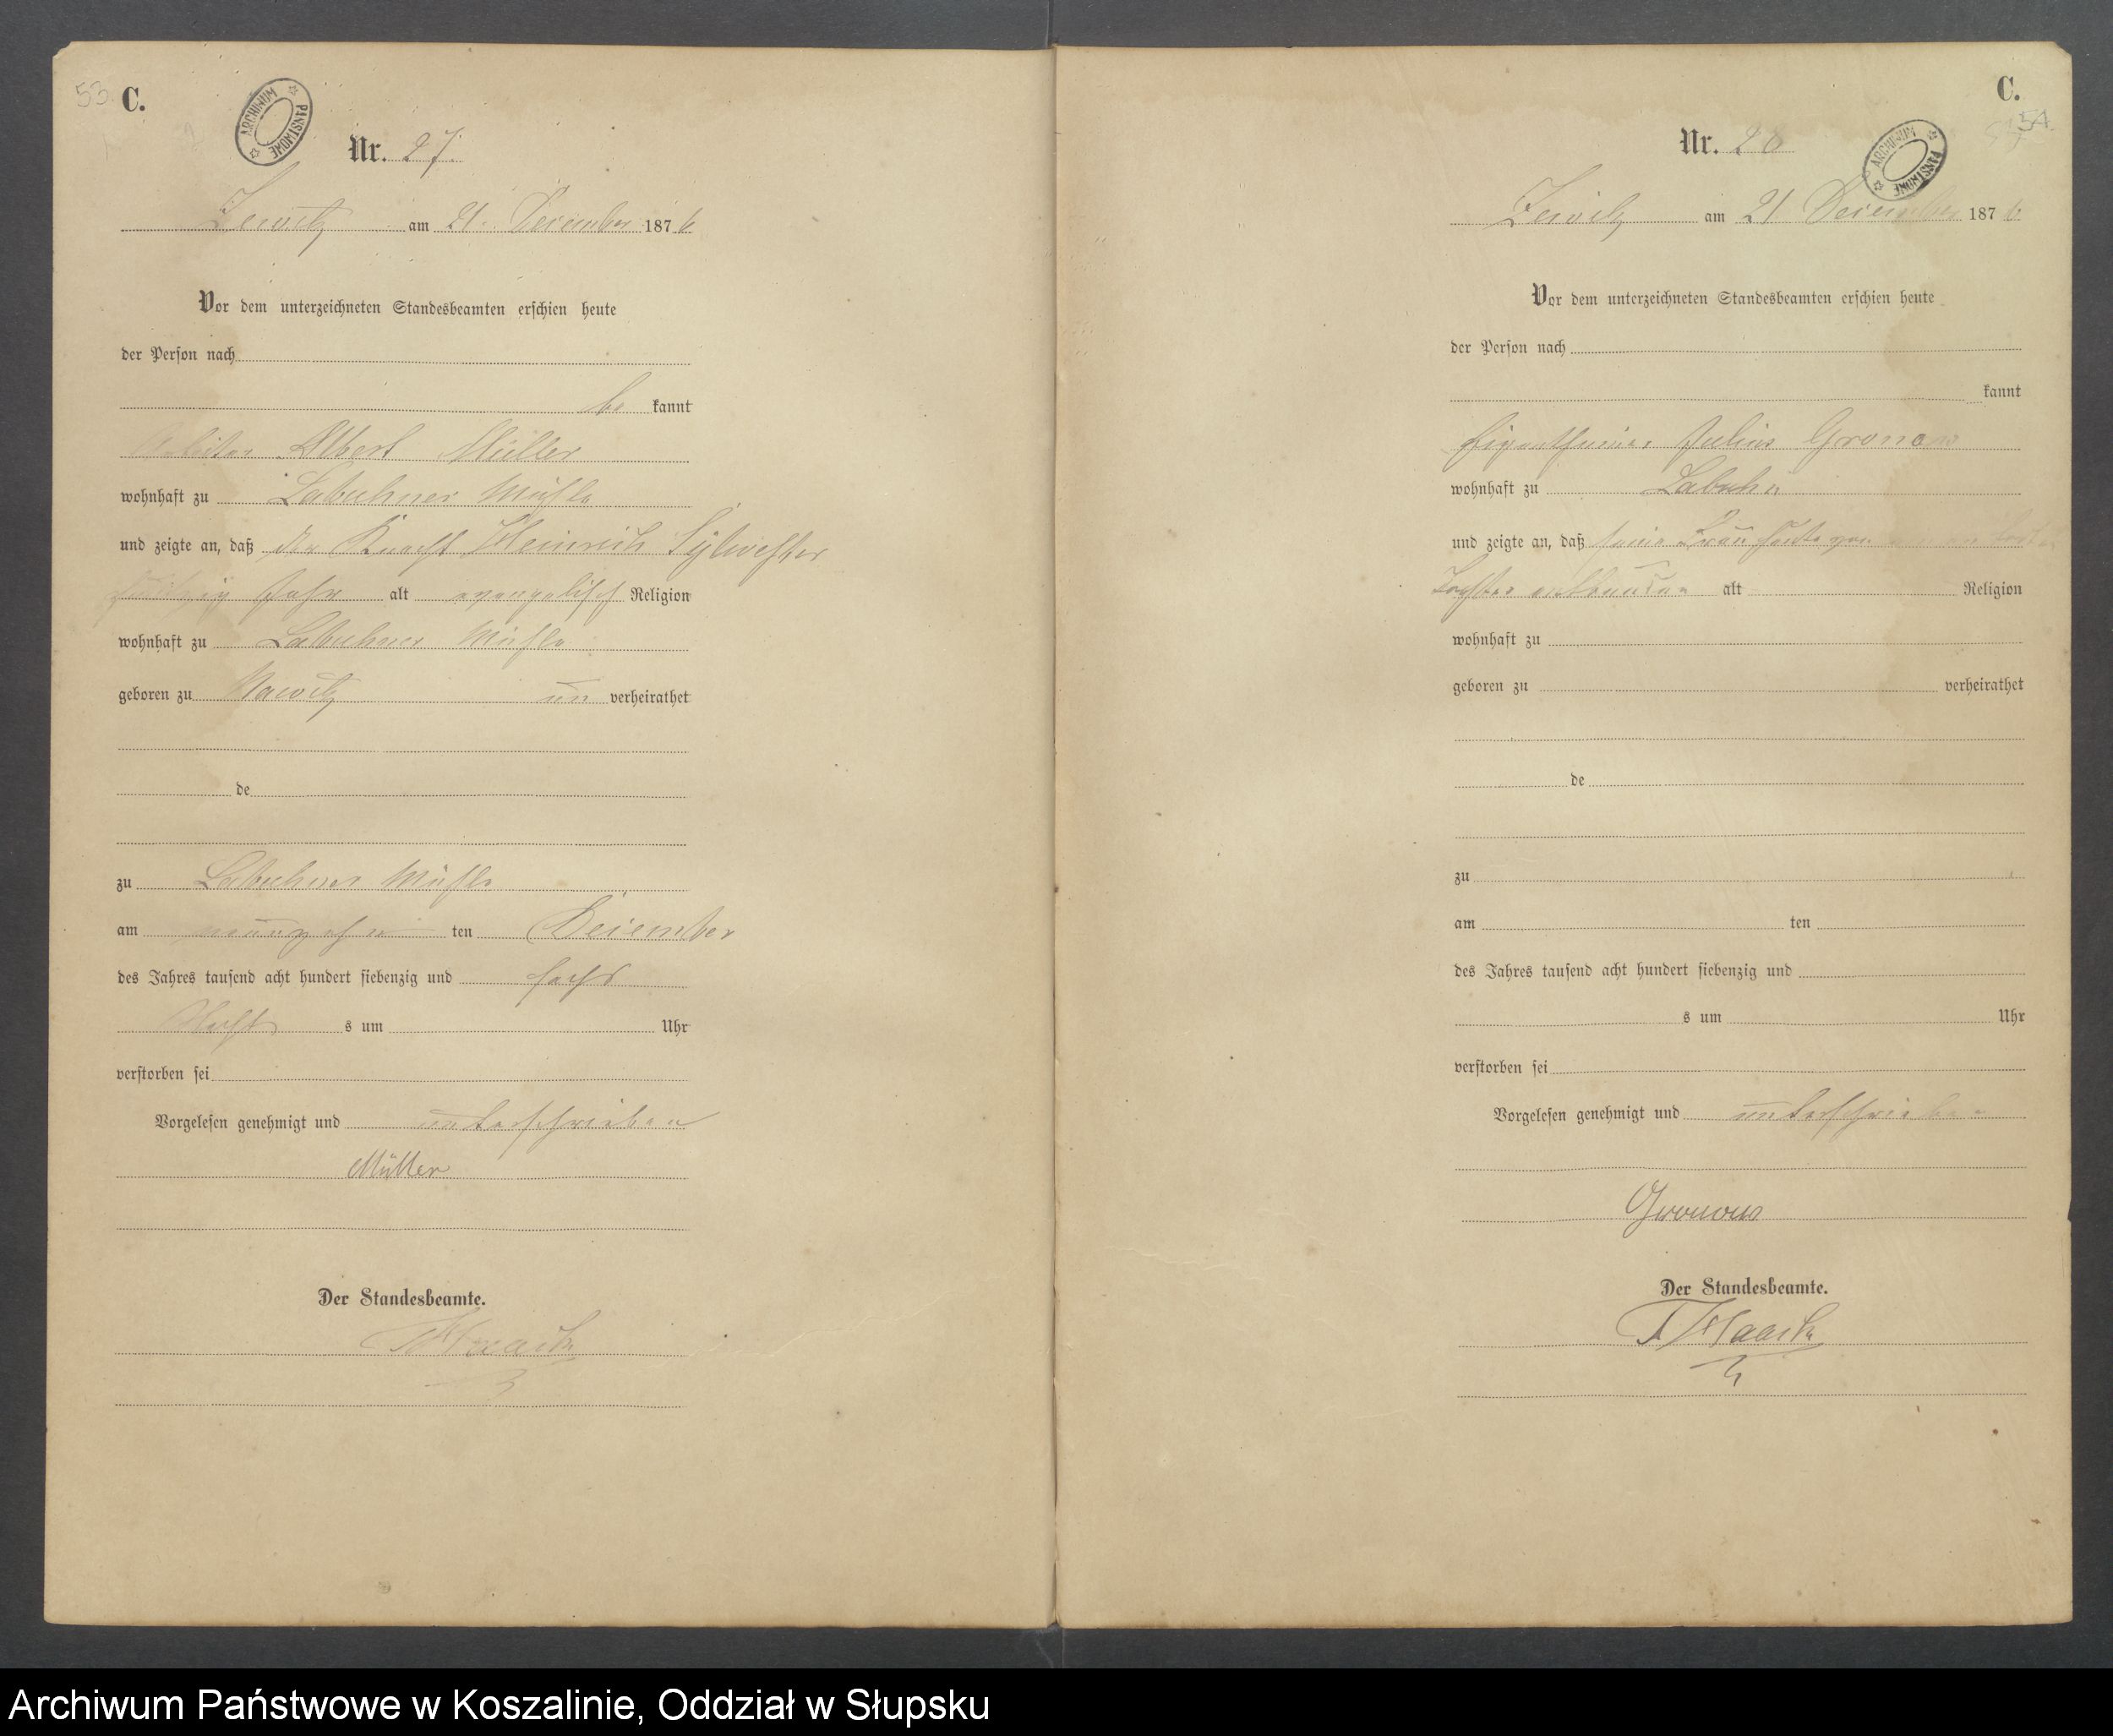 53. C.
ARCHIWUM PAŃSTWOWE
Nr. 27.
Zewitz am 21. December 1876
Vor dem unterzeichneten Standesbeamten erschien heute
der Person nach
be kannt
Arbeiter Albert Müller
wohnhaft zu Labuhner Mühle
und zeigte an, daß der Knecht Heinrich Sylvester
Jahr alt evangelisch Religion
wohnhaft zu Labuhner Mühle
geboren zu un verheirathet
de
zu Labuhner Mühle
am neunzehn ten December
des Jahres tausend acht hundert siebenzig und sechs
s um Uhr
verstorben sei
Vorgelesen genehmigt und unterschrieben
Müller
Der Standesbeamte.
Haack
C.
54.
ARCHIWUM PAŃSTWOWE
Nr. 28
Zewitz am 21 December 1876
Vor dem unterzeichneten Standesbeamten erschien heute
der Person nach
kannt
Eigenthümer Julius Gronow
wohnhaft zu Labuhn
und zeigte an, daß seine Frau heute von
Tochter entbunden alt Religion
wohnhaft zu
geboren zu verheirathet
de
zu
am ten
des Jahres tausend acht hundert siebenzig und
s um Uhr
verstorben sei
Vorgelesen genehmigt und unterschrieben
Gronow
Der Standesbeamte.
Haack
Archiwum Państwowe w Koszalinie, Oddział w Słupsku